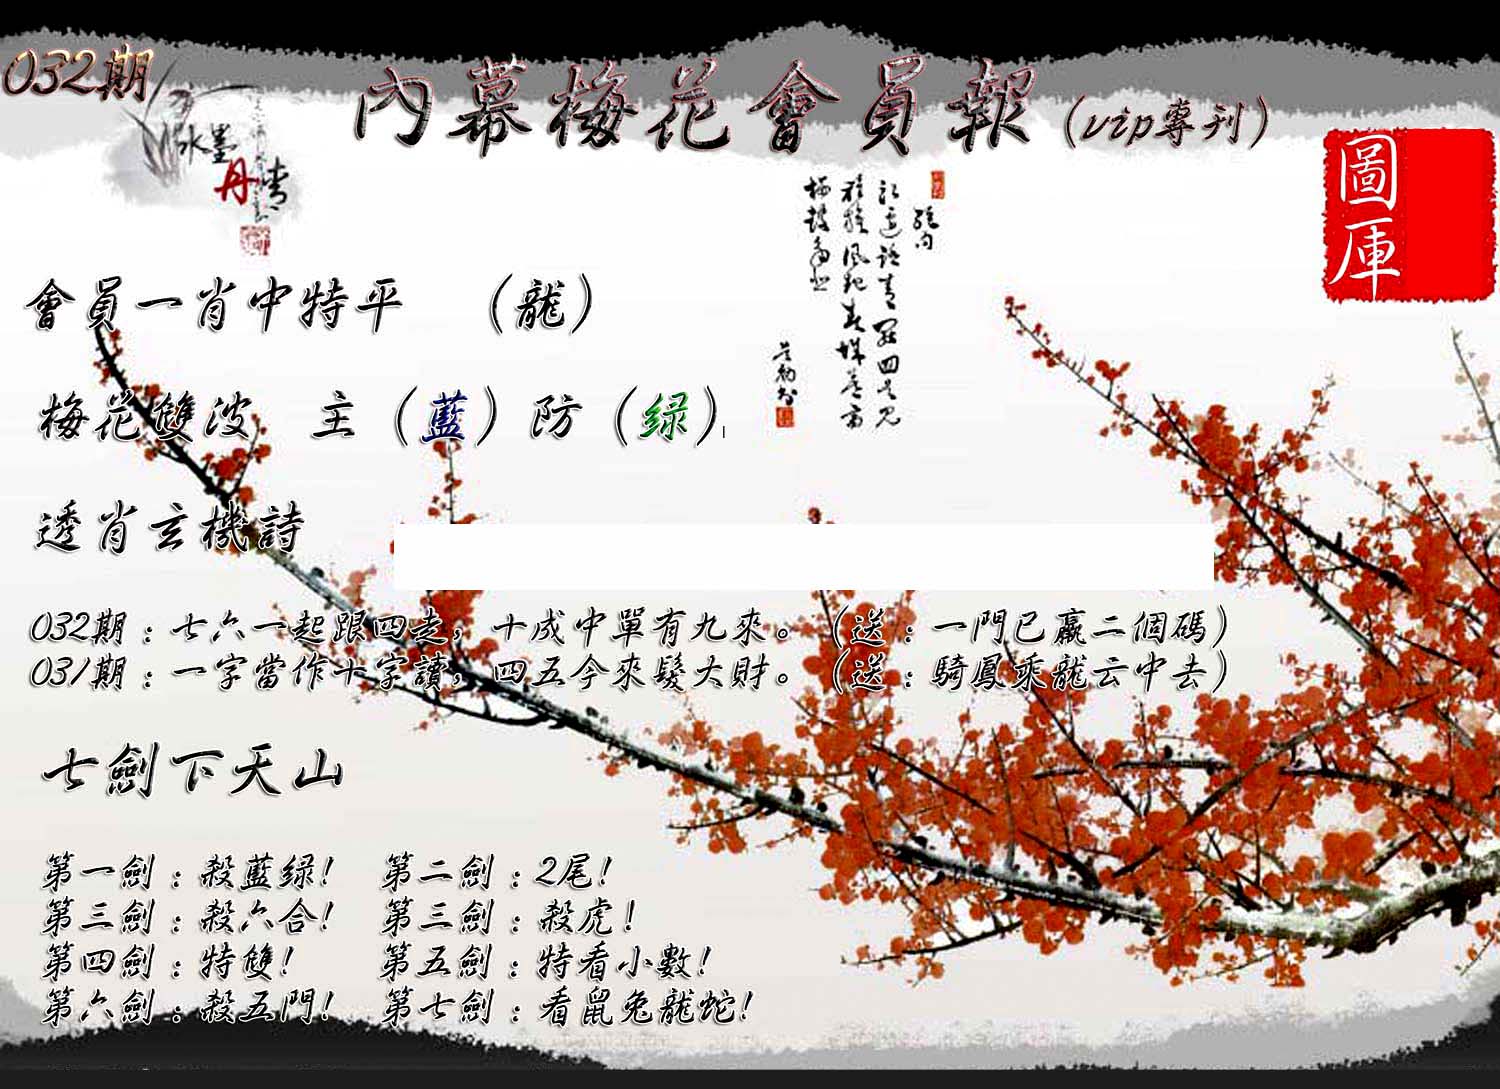 032期
內幕梅花會員報（vip專刊）
水墨
丹青
圖庫
會員一肖中特平 （龍）
梅花雙波 主（藍）防（绿）
透肖玄機詩
032期：七六一起跟四走，十成中單有九來。（送：一門已贏二個碼）
031期：一字當作十字讀，四五今來髮大財。（送：騎鳳乘龍云中去）
七劍下天山
第一劍：殺藍绿！ 第二劍：2尾！
第三劍：殺六合！ 第三劍：殺虎！
第四劍：特雙！ 第五劍：特看小數！
第六劍：殺五門！ 第七劍：看鼠兔龍蛇！